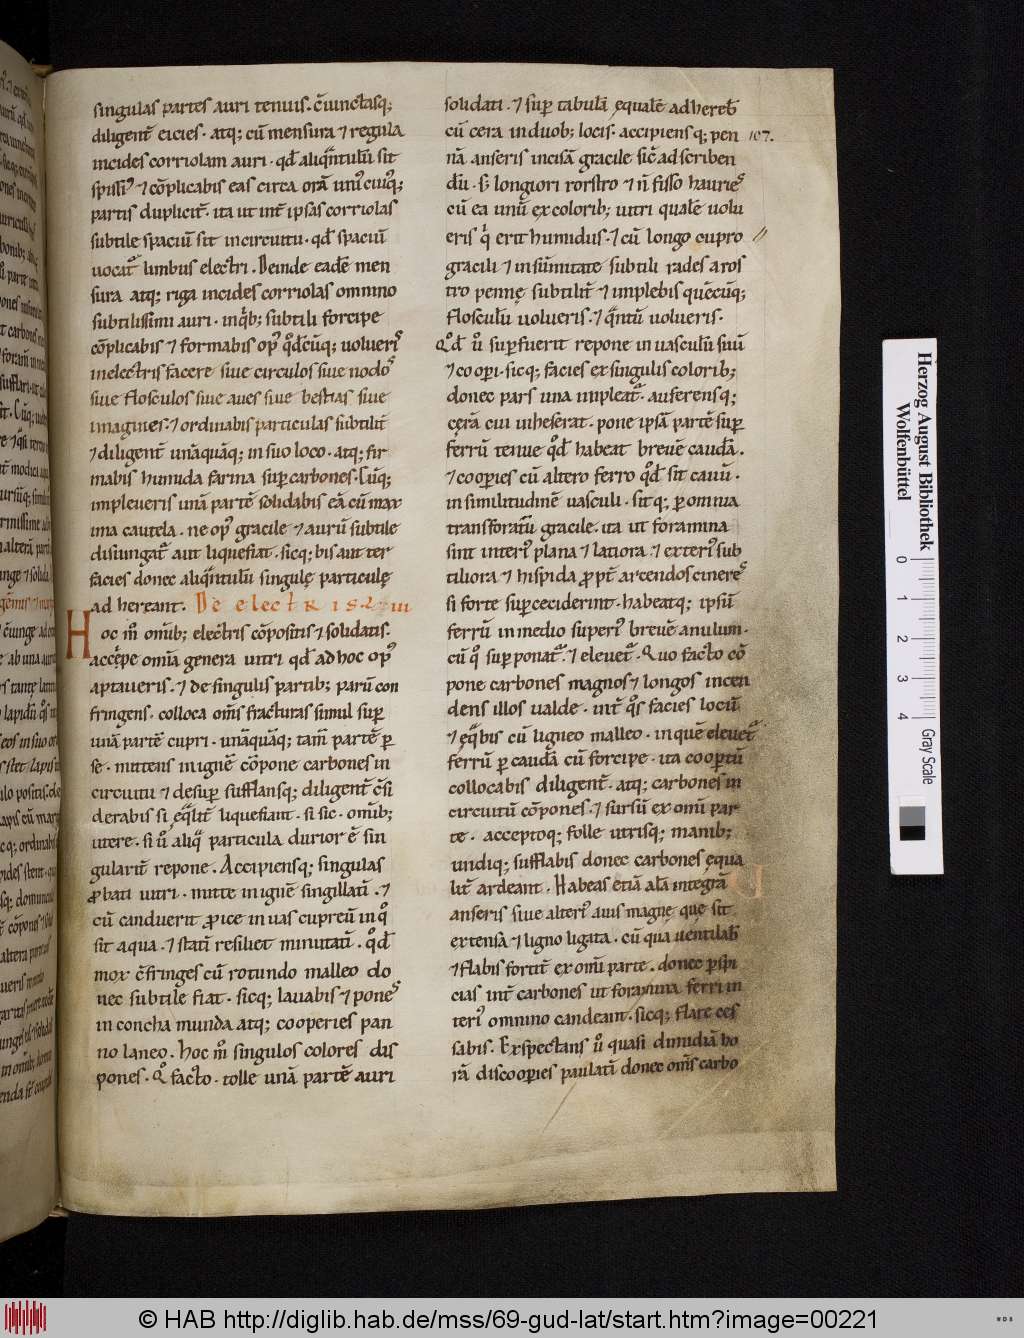 singulas partes auri tenuis. c̄iunctasq;
diligent̄ eicies. atq; cū mensura ⁊ regula
incides corriolam auri. qd̄ aliqͣntulū sit
spissi᷒ ⁊ cōplicabis eas circa orā uni᷒cui᷒q;
partis duplicit̄. ita ut int̄ ipsas corriolas
subtile spaciū sit in circuitu. qd̄ spaciū
uocat᷑ limbus electri. Deinde eadē men
sura atq; riga incides corriolas omnino
subtilissimi auri. inqͥb; subtili forcipe
cōplicabis ⁊ formabis op᷒ qͦdcūq; uolueri᷒
in electris facere siue circulos siue nodo᷒
siue flosculos siue aues siue bestias siue
imagines. ⁊ ordinabis particulas subtilit̄
⁊ diligent̄ unāquāq; in suo loco. atq; fir
mabis humida farina suꝑ carbones. Cūq;
impleueris unā partē solidabis eā cū max
ima cautela. ne op᷒ gracile ⁊ aurū subtile
disiungat᷑ aut liquefiat. sicq; bis aut ter
facies donec aliqͣntulū singulę particulę
adhereant. De electris
Hoc m̊ om̄ib; electris cōpositis ⁊ solidatis.
accipe om̄ia genera uitri qd̄ ad hoc op᷒
aptaueris. ⁊ de singulis partib; parū con
fringens. colloca om̄s fracturas simul suꝑ
unā partē cupri. unāquāq; tam̄ partē ꝑ
se. mittens in ignē cōpone carbones in
circuitu ⁊ desuꝑ sufflansq; diligent̄ c̄si
derabis si ęqͣlit̄ liquefiant. si sic. om̄ib;
utere. si u̾ aliqͣ particula durior ē sin
gularit̄ repone. Accipiensq; singulas
ꝓbati uitri. mitte in ignē singillatī. ⁊
cū canduerit ꝓice in uas cupreū in qͦ
sit aqua. ⁊ statī resiliet minutatī. qͦd
mox c̄fringes cū rotundo malleo do
nec subtile fiat. sicq; lauabis ⁊ pone᷒
in concha munda atq; cooperies pan
no laneo. hoc m̊ singulos colores dis
pones. Qͦ facto. tolle unā partē auri
solidati. ⁊ suꝑ tabulā ęqualē adhereb̄
cū cera in duob; locis. accipiensq; pen
107.
nā anseris incisā gracile sic̄ ad scriben
dū. s; longiori rorstro ⁊ n̄ fisso haurie᷒
cū ea unū ex colorib; uitri qualē uolu
eris qͥ erit humidus. ⁊ cū longo cupro
gracili ⁊ in sūmitate subtili rades a ros
tro pennę subtilit̄ ⁊ implebis quēcūq;
flosculū uolueris. ⁊ qͣntū uolueris.
Qͦd u̾ suꝑfuerit repone in uasculū suū
⁊ cooꝑi. sicq; facies ex singulis colorib;
donec pars una impleat᷑. auferensq;
cęrā cui inheserat. pone ipsā partē suꝑ
ferrū tenue qͦd habeat breuē caudā.
⁊ cooꝑies cū altero ferro qͦd sit cauū.
in similitudinē uasculi. sitq; ꝑ omnia
transforatū gracile. ita ut foramina
sint interi᷒ plana ⁊ latiora. ⁊ exteri᷒ sub
tiliora ⁊ hispida ꝓpt̄ arcendos cinere᷒
si forte suꝑceciderint. habeatq; ipsū
ferrū in medio superi᷒ breuē anulum.
cū qͦ suꝑponat᷑. ⁊ eleuet᷑. Quo facto cō
pone carbones magnos ⁊ longos incen
dens illos ualde. int̄ qͦs facies locū
⁊ ęqͣbis cū ligneo malleo. in quē eleuet᷑
ferrū ꝑ caudā cū forcipe. ita cooꝑtū
collocabis diligent̄. atq; carbones in
circuitū cōpones. ⁊ sursū ex omī par
te. acceptoq; folle utrisq; manib;
undiq; sufflabis donec carbones ęqua
lit̄ ardeant. Habeas etiā alā integrā
anseris siue alteri᷒ auis magnę quę sit
extensa ⁊ ligno ligata. cū qua uentilab̄
⁊ flabis fortit̄ ex omī parte. donec ꝑspi
cias int̄ carbones ut foramina ferri in
teri᷒ omnino candeant. sicq; flare ces
sabis. Exspectans u̾ quasi dimidiā ho
rā discooꝑies paulatī donec om̄s carbo
Herzog August Bibliothek
Wolfenbüttel
0 1 2 3 4
Gray Scale
© HAB http://diglib.hab.de/mss/69-gud-lat/start.htm?image=00221